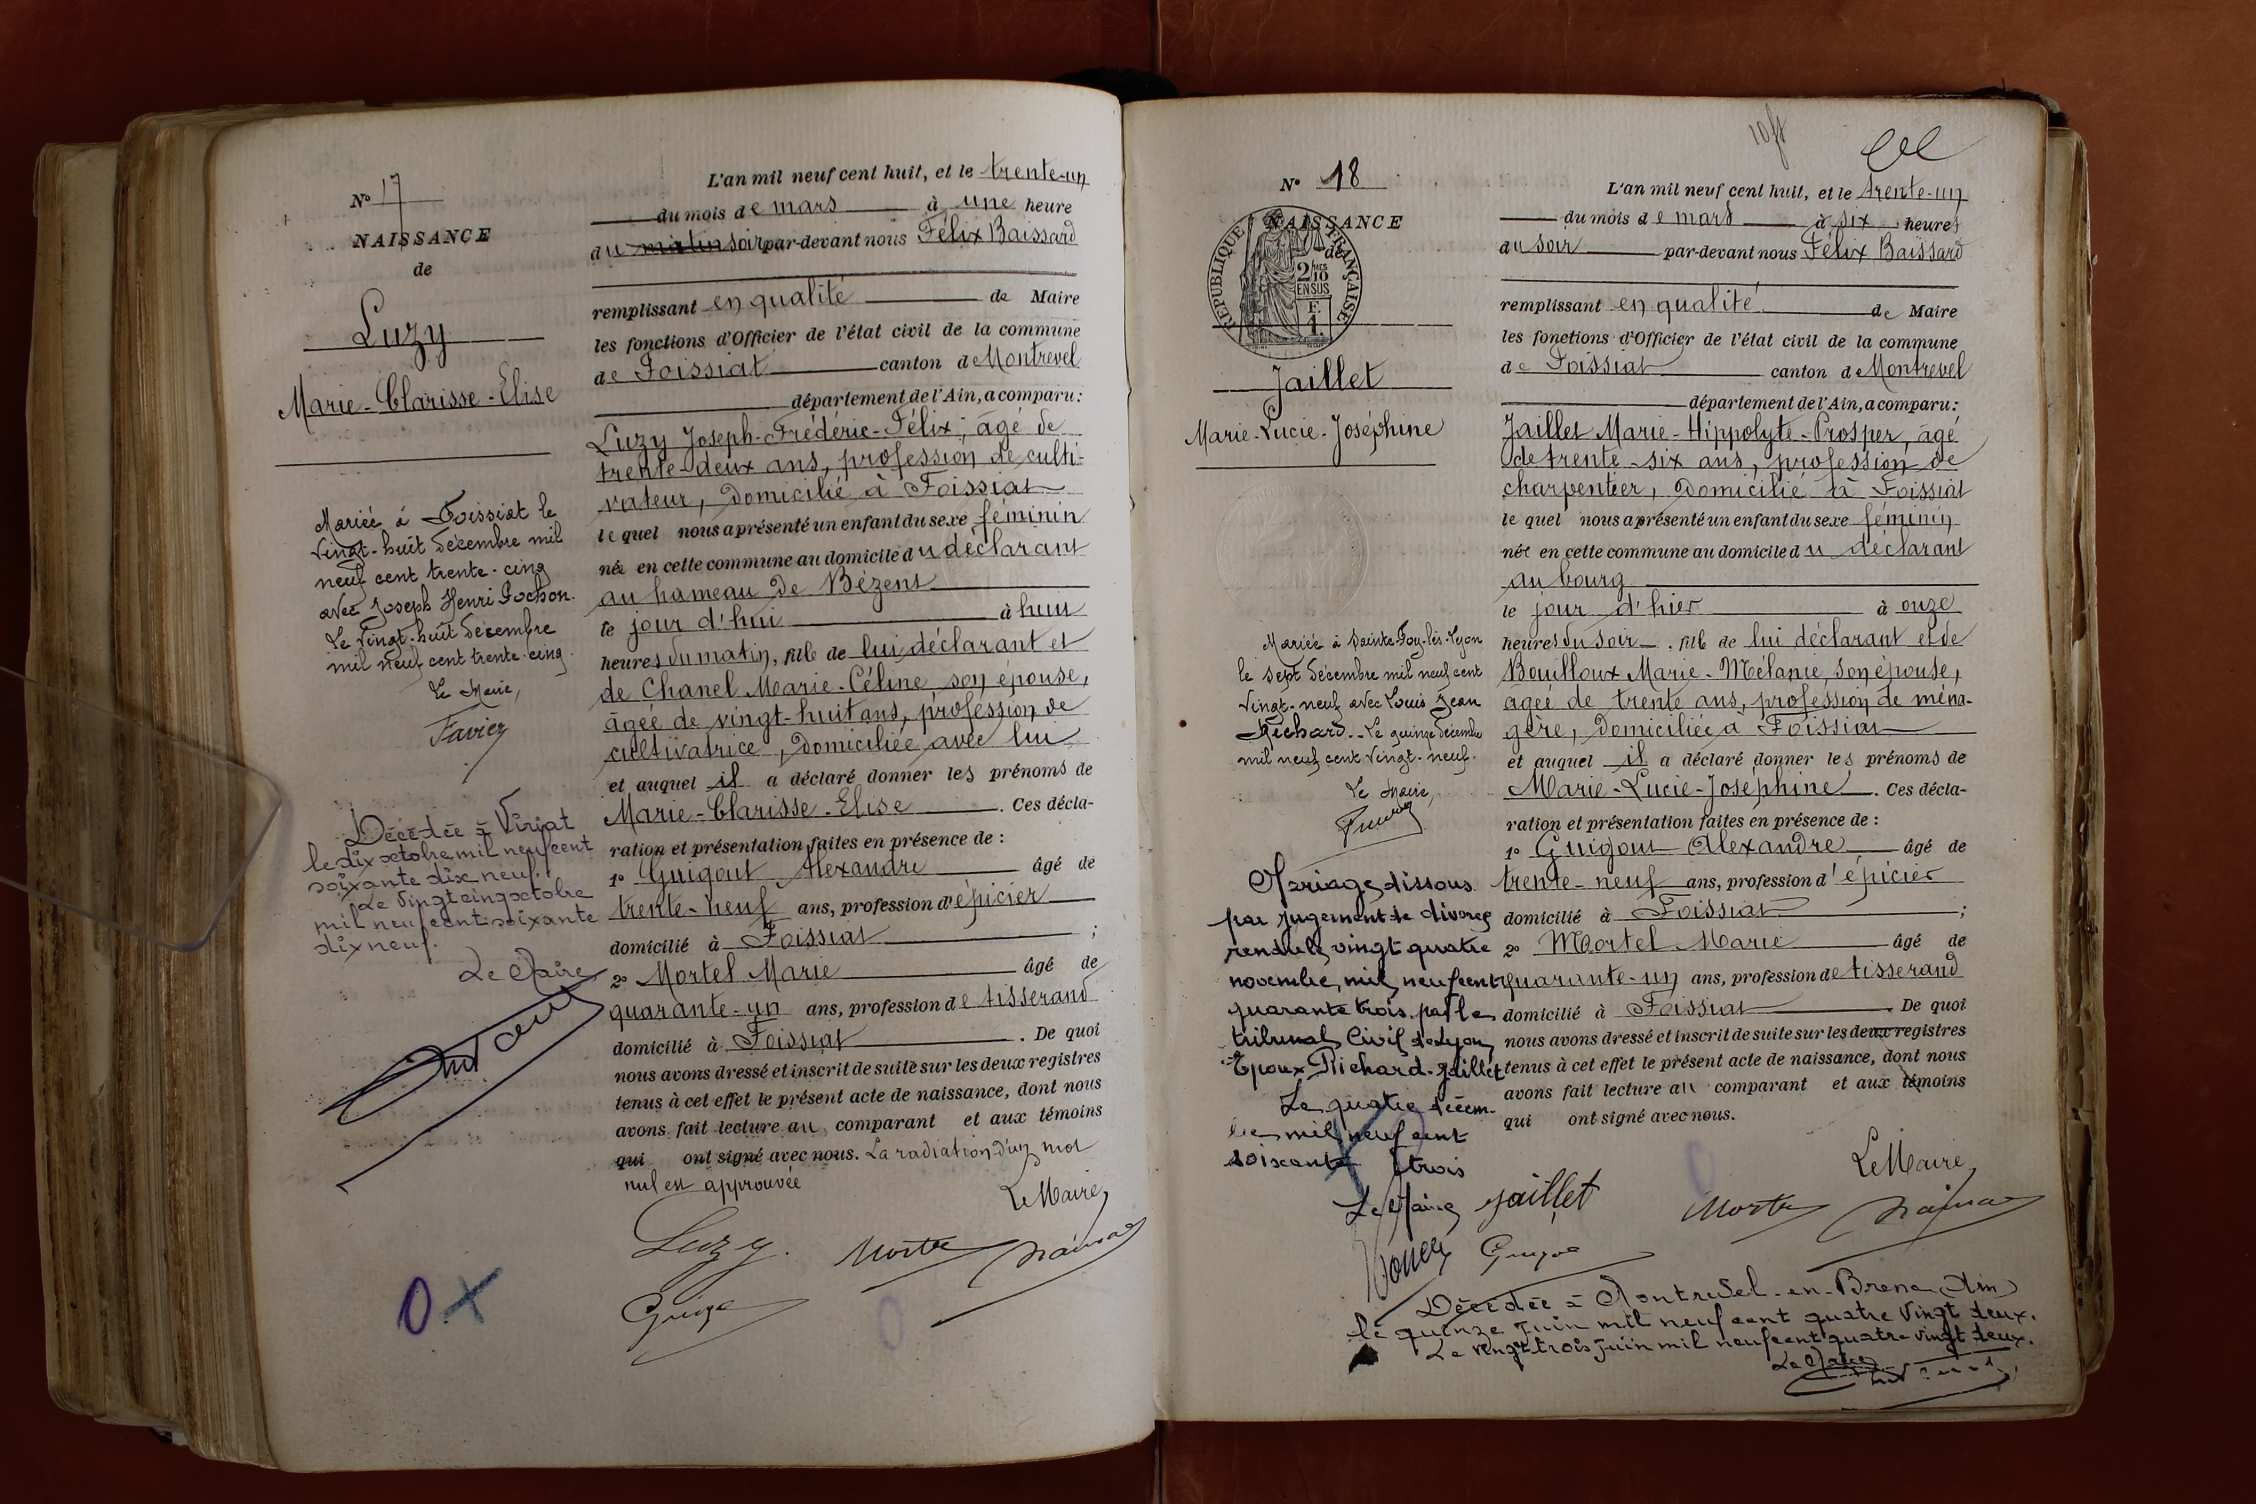 Nº 17
NAISSANCE
de
Luzy
Marie-Clarisse-Elise
Mariée à Foissiat le
vingt-huit décembre mil
neuf cent trente-cinq
avec Joseph Henri Pochon.
Le vingt-huit décembre
mil neuf cent trente-cinq.
Le Maire,
Favier
Décédée à Viriat
le dix octobre mil neuf cent
soixante dix neuf.
Le vingt cinq octobre
mil neuf cent soixante
dix neuf.
Le Maire
L'an mil neuf cent huit, et le trente-un
du mois de mars à une heure
du matin soir par-devant nous Félix Baissard
remplissant en qualité de Maire
les fonctions d'Officier de l'état civil de la commune
de Foissiat canton de Montrevel
département de l'Ain, a comparu:
Luzy Joseph-Frédéric-Félix, âgé de
trente-deux ans, profession de culti-
vateur, domicilié à Foissiat
lequel nous a présenté un enfant du sexe féminin
née en cette commune au domicile du déclarant
au hameau de Bézent
le jour d'hui à huit
heures du matin, fille de lui déclarant et
de Chanel Marie-Céline son épouse,
âgée de vingt-huit ans, profession de
cultivatrice, domiciliée avec lui
et auquel il a déclaré donner les prénoms de
Marie-Clarisse-Elise. Ces décla-
ration et présentation faites en présence de :
1º Guigout Alexandre âgé de
trente-neuf ans, profession d'épicier
domicilié à Foissiat ;
2º Mortel Marie âgé de
quarante-un ans, profession de tisserand
domicilié à Foissiat. De quoi
nous avons dressé et inscrit de suite sur les deux registres
tenus à cet effet le présent acte de naissance, dont nous
avons fait lecture au comparant et aux témoins
qui ont signé avec nous. La radiation d'un mot
nul est approuvée
Le Maire,
Luzy. Mortel
0 X
0
Nº 18
NAISSANCE
de
REPUBLIQUE FRANÇAISE
2/10
EN SUS
F.
1.
Jaillet
Marie-Lucie-Joséphine
Mariée à Sainte-Foy-lès-Lyon
le sept décembre mil neuf cent
vingt-neuf avec Louis Jean
Richard. Le quinze décembre
mil neuf cent vingt-neuf.
Le Maire,
Mariage dissous
par jugement de divorce
rendu le vingt quatre
novembre mil neuf cent
quarante trois par le
tribunal Civil de Lyon
Epoux Richard-Jaillet
Le quatre décem-
bre mil neuf cent
soixante trois
Le Maire
L'an mil neuf cent huit, et le trente-un
du mois de mars à six heures
du soir par-devant nous Félix Baissard
remplissant en qualité de Maire
les fonctions d'Officier de l'état civil de la commune
de Foissiat canton de Montrevel
département de l'Ain, a comparu:
Jaillet Marie-Hippolyte-Prosper, âgé
de trente-six ans, profession de
charpentier, domicilié à Foissiat
lequel nous a présenté un enfant du sexe féminin
née en cette commune au domicile du déclarant
au bourg
le jour d'hier à onze
heures du soir. fille de lui déclarant et de
Bouilloux Marie-Mélanie, son épouse,
âgée de trente ans, profession de ména-
gère, domiciliée à Foissiat
et auquel il a déclaré donner les prénoms de
Marie-Lucie-Joséphine. Ces décla-
ration et présentation faites en présence de :
1º Guigout Alexandre âgé de
trente-neuf ans, profession d'épicier
domicilié à Foissiat ;
2º Mortel Marie âgé de
quarante-un ans, profession de tisserand
domicilié à Foissiat. De quoi
nous avons dressé et inscrit de suite sur les deux registres
tenus à cet effet le présent acte de naissance, dont nous
avons fait lecture au comparant et aux témoins
qui ont signé avec nous.
Le Maire
Jaillet Mortel
Décédée à Montrevel-en-Bresse (Ain)
le quinze juin mil neuf cent quatre vingt deux.
Le vingt trois juin mil neuf cent quatre vingt deux.
Le Maire